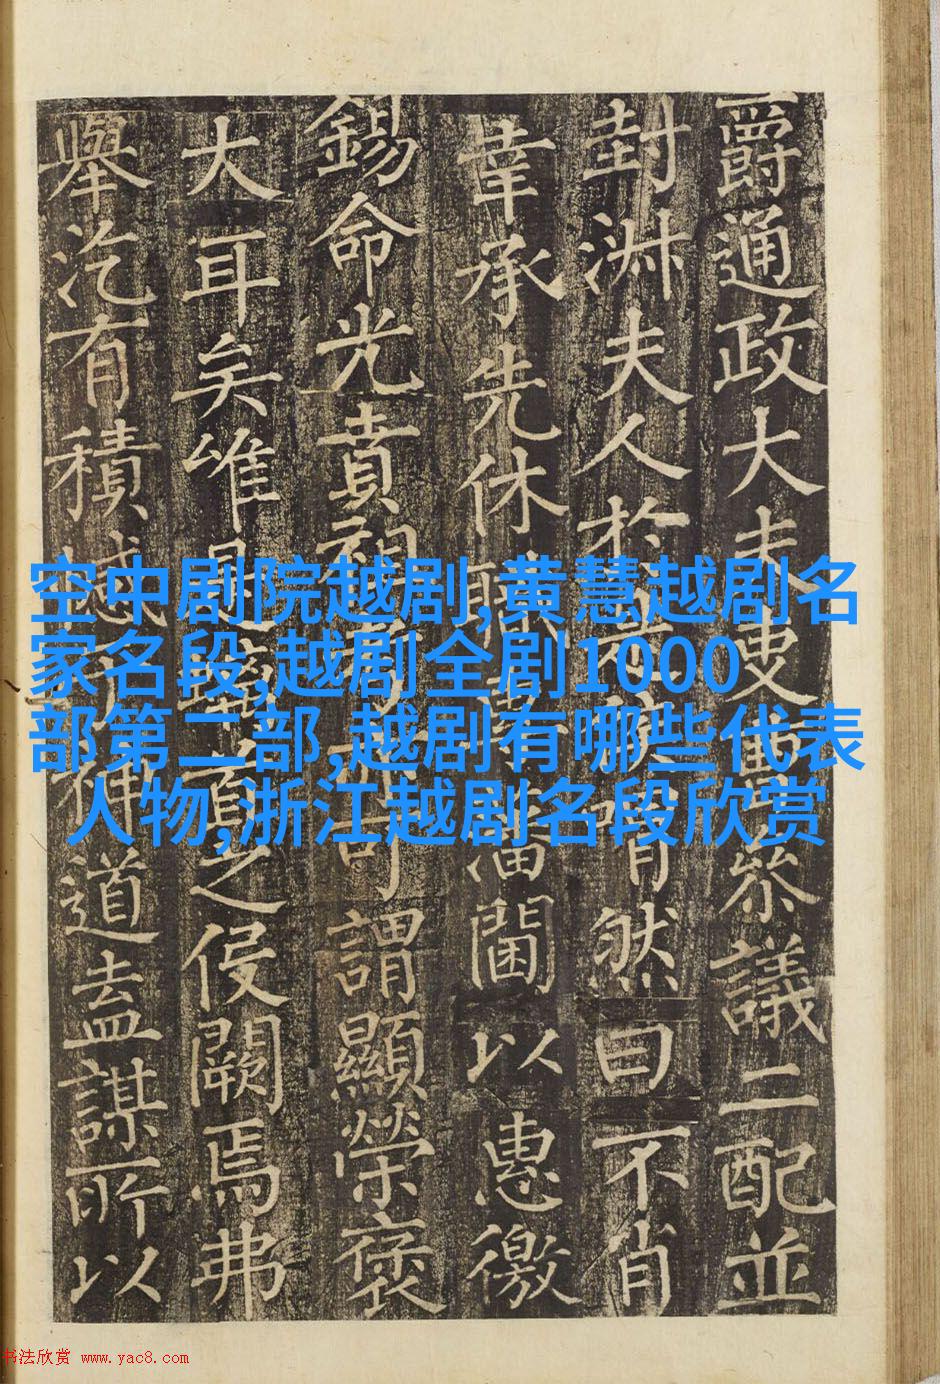 爵通政大夫吏曹叅議二配並
封淑夫人於喟然曰不肖
幸承先休職藩閫以惠徼
錫命光賁祖可謂顯榮褒
大耳矣唯是首之侵闕焉弗
舉汔有積憾道盍謀所以
空中剧院越剧,黄慧越剧名
家名段,越剧全剧1000
部第二部,越剧有哪些代表
人物,浙江越剧名段欣赏
书法欣赏 www.yac8.com